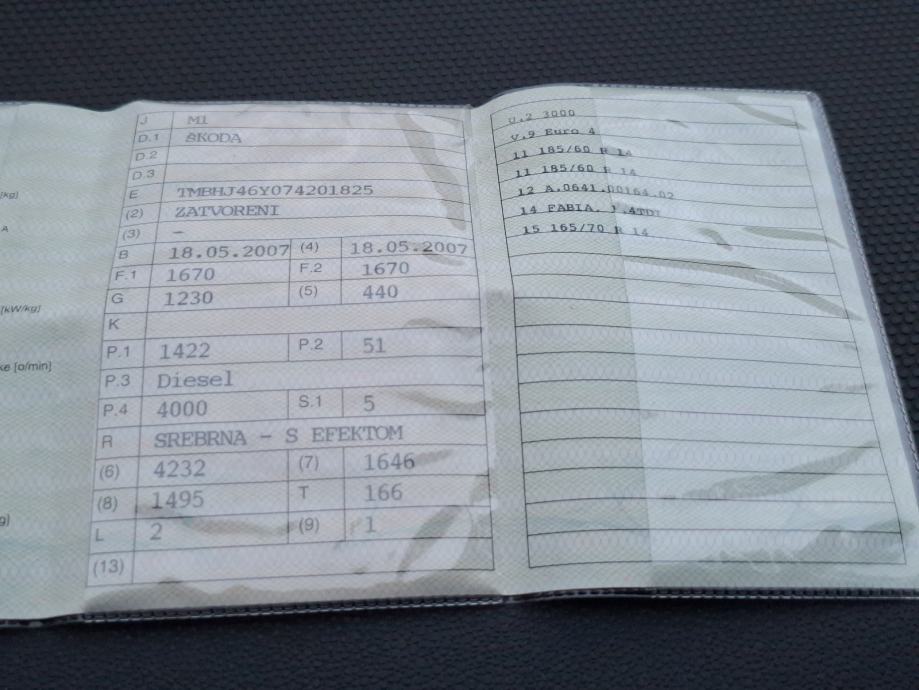 [kg]
A
[kW/kg]
ke [o/min]
g]
J M1
D.1 ŠKODA
D.2
D.3
E TMBHJ46Y074201825
(2) ZATVORENI
(3) -
B 18.05.2007 (4) 18.05.2007
F.1 1670 F.2 1670
G 1230 (5) 440
K
P.1 1422 P.2 51
P.3 Diesel
P.4 4000 S.1 5
R SREBRNA - S EFEKTOM
(6) 4232 (7) 1646
(8) 1495 T 166
L 2 (9) 1
(13)
U.2 3000
V.9 Euro 4
11 185/60 R 14
11 185/60 R 14
12 A.0641.00164.02
14 FABIA, 1.4TDI
15 165/70 R 14